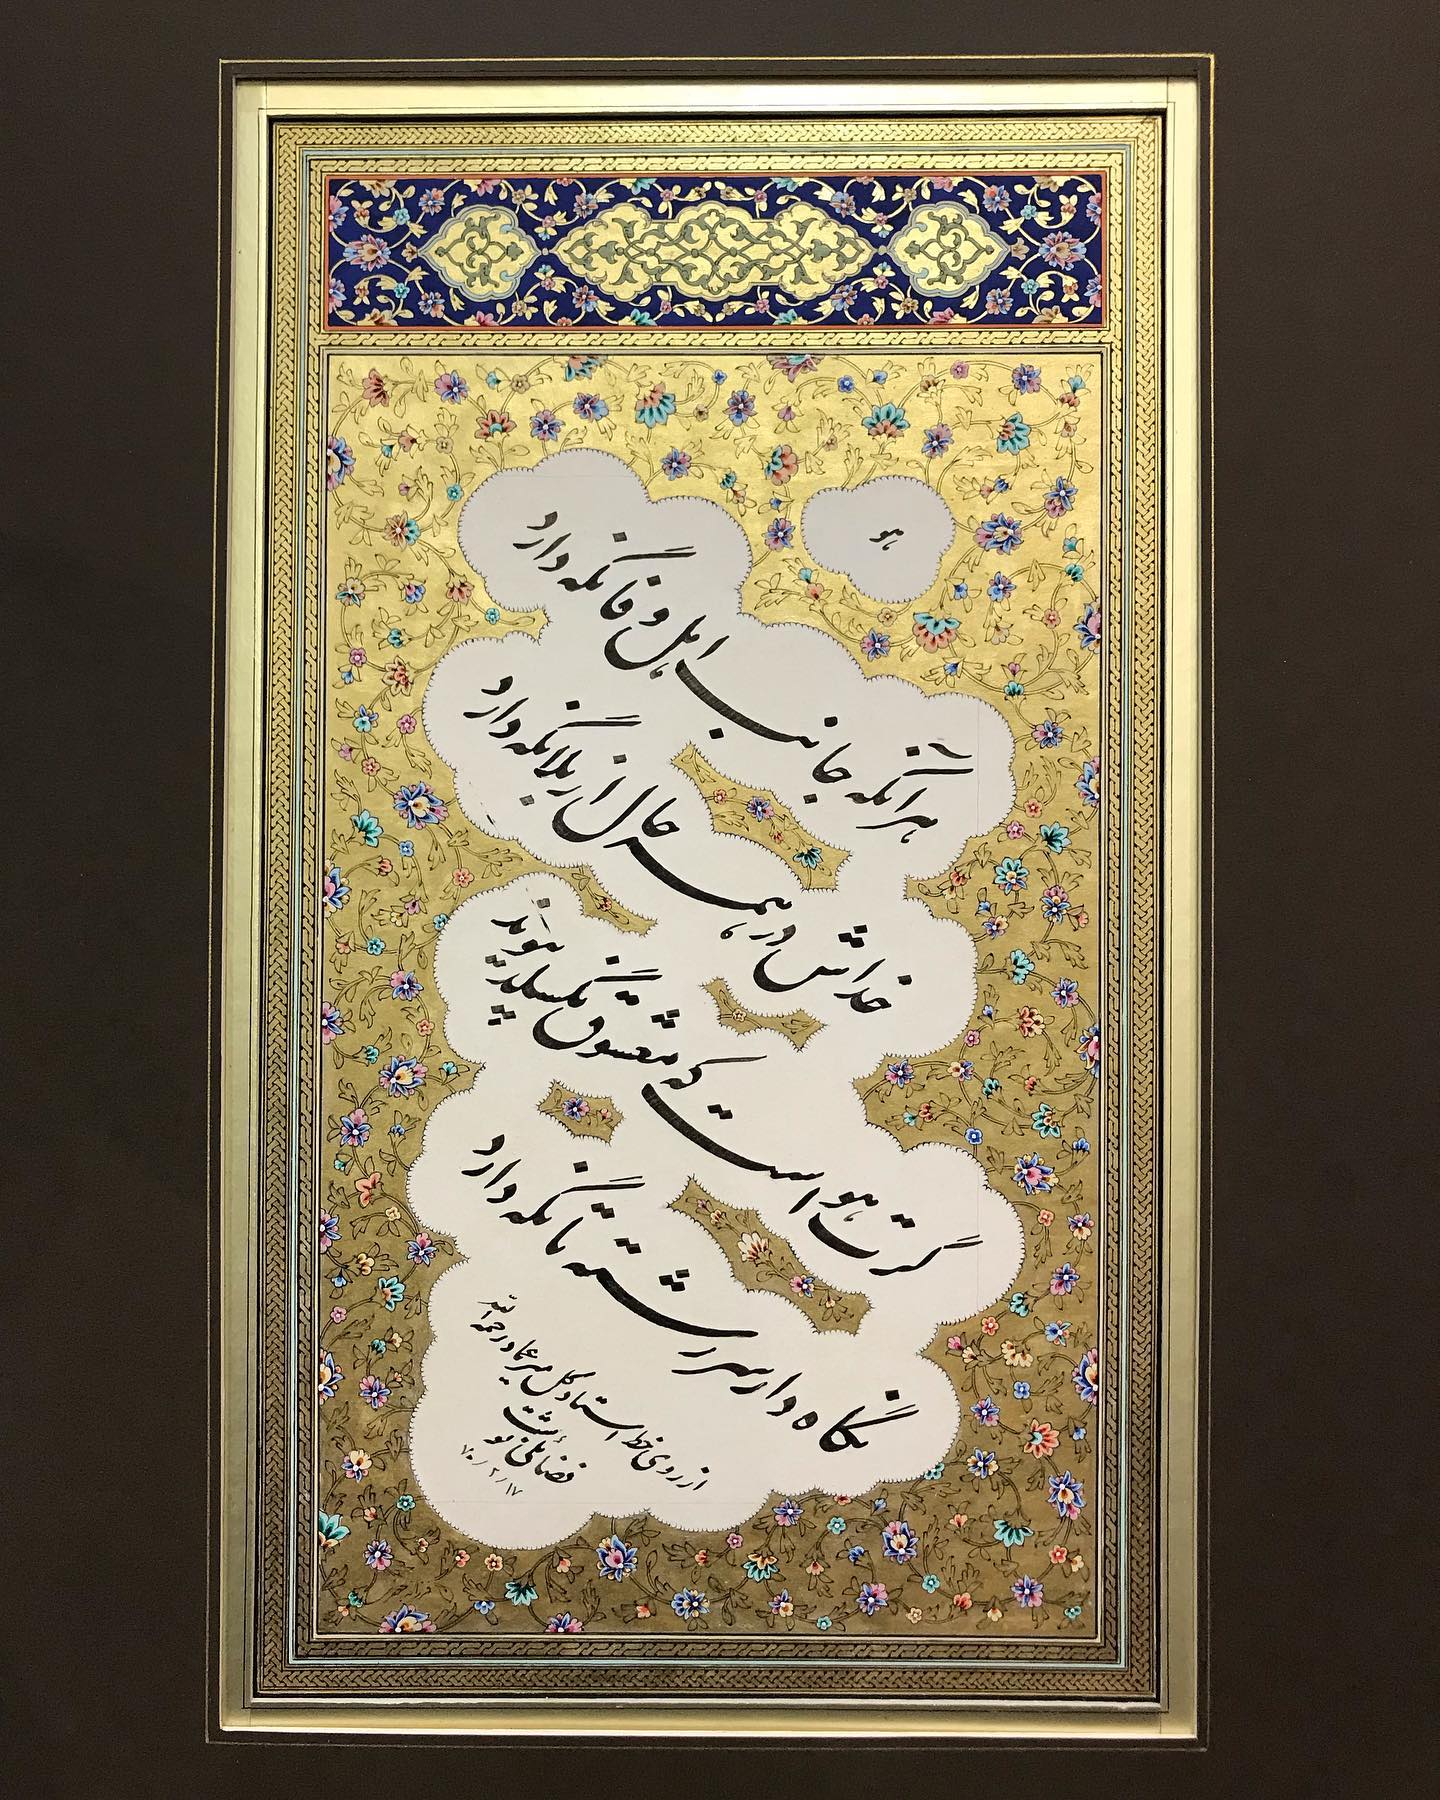 هو
هر آنکه جانب اهل وفا نگه دارد
خداش در همه حال از بلا نگه دارد
گرت هواست که معشوق نگسلد پیوند
نگاه دار سر رشته تا نگه دارد
از روی خط استاد کل میر عماد رحمه الله
فضائلی نوشت
۷۰/۲/۱۷